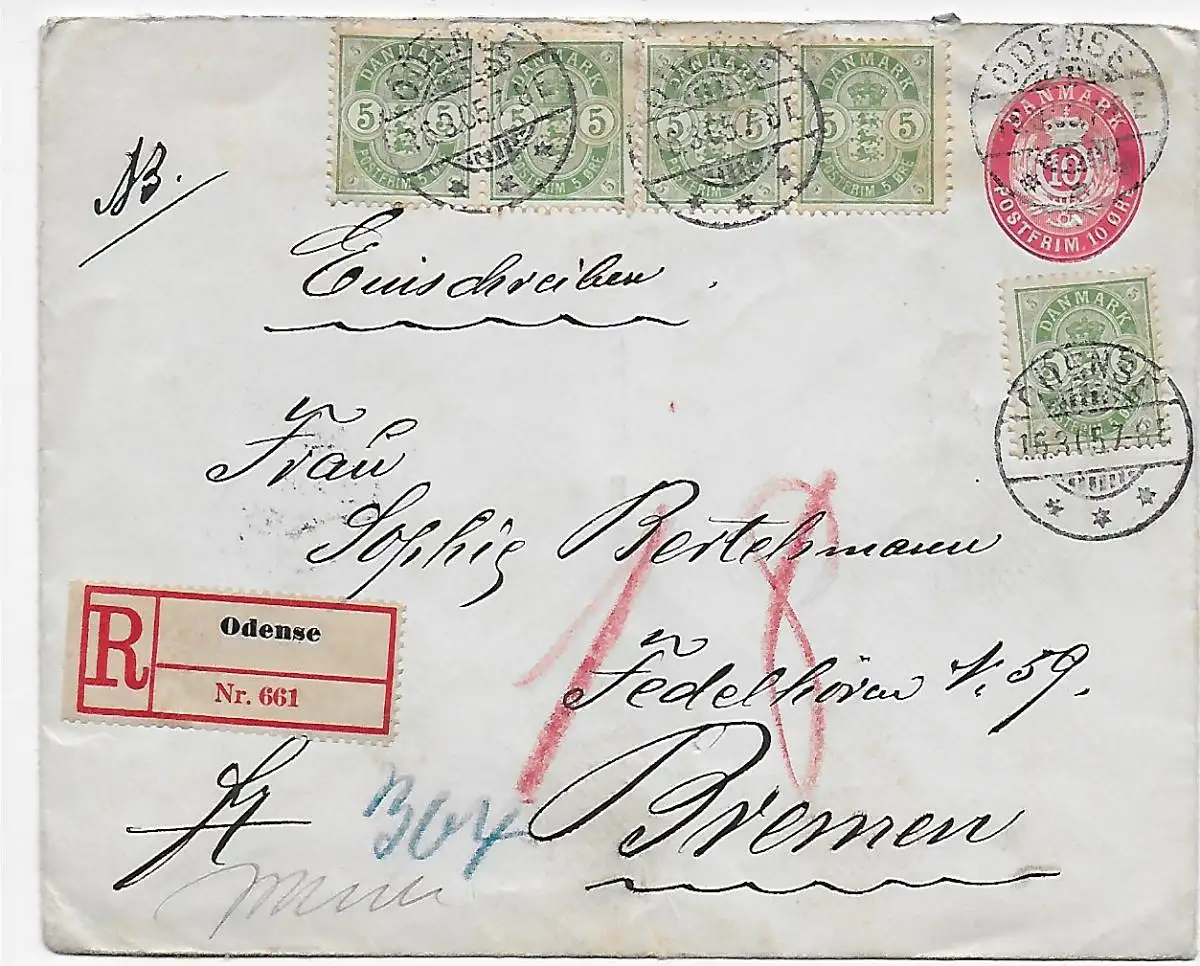 DANMARK 5 5 POSTFRIM 5 ØRE
DANMARK 5 5 POSTFRIM 5 ØRE
DANMARK 5 5 POSTFRIM 5 ØRE
DANMARK 5 5 POSTFRIM 5 ØRE
ODENSE
DANMARK
10
POSTFRIM. 10 ØRE
NB.
Einschreiben.
DANMARK
5 5
ODENSE
16.3.05.7-8E
Frau
Sophie Bertelsmann
18
R
Odense
Nr. 661
Fedelhören N. 59.
Bremen
364